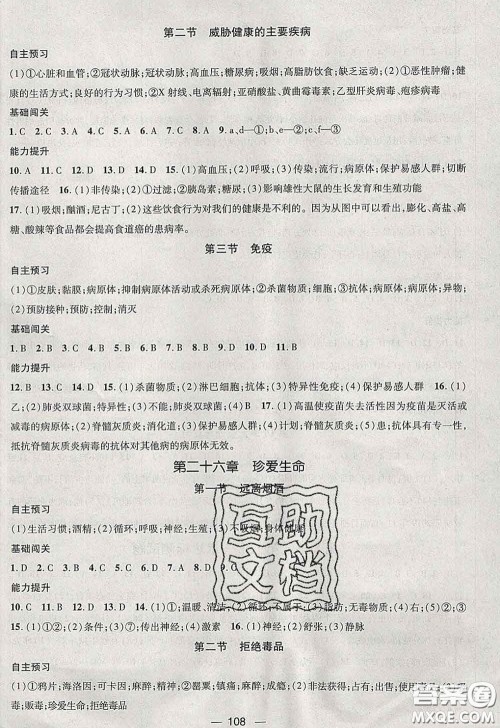 第二节 威胁健康的主要疾病
自主预习
(1)①心脏和血管;②冠状动脉;冠状动脉;高血压;糖尿病;吸烟;高脂饮食;缺乏运动;(2)①恶性肿瘤;健
康的生活方式;良好的行为习惯;②X射线、电离辐射;亚硝酸盐、黄曲霉毒素;乙型肝炎病毒、疱疹病毒
基础闯关
1.C 2.C 3.A 4.D 5.B 6.C 7.D 8.C 9.a、d—①;b、e—②;c、f—③
能力提升
10.A 11.C 12.C 13.D 14.D 15.(1)高血压;(2)呼吸;(3)传染;流行;病原体;保护易感人群;切断
传播途径 16.(1)非传染;(2)①过滤;②胰岛素;糖尿;(3)影响雄性大鼠的生长发育和生殖功能
17.(1)吸烟;酗酒;尼古丁;(2)这些饮食行为对我们的健康是不利的。因为从图中可以看出,膨化、高盐、高
糖、酸辣等食品都会提高食道癌的患病率。
第三节 免疫
自主预习
(1)①皮肤;黏膜;病原体;抑制病原体活动或杀死病原体;②杀菌物质;③抗体;病原体;病原体;异物;
(2)预防接种;预防;控制;消灭
基础闯关
1.B 2.B 3.C 4.D 5.C 6.D 7.B 8.D 9.A 10.D 11.B
能力提升
12.B 13.C 14.D 15.(1)杀菌物质;(2)淋巴细胞;抗体;(3)特异性免疫;(4)保护易感人群 16.(1)
乙;(2)肺炎双球菌;特异性;(3)不能;肺炎双球菌;(4)抗体 17.(1)高温使疫苗失去活性因为灭活或
减毒的病原体;(2)抗原;脊髓灰质炎;消化道;(3)保护易感人群;(4)不能,抗体具有专一性、特异性,
抵抗脊髓灰质炎病毒的抗体对其他病的病原体无效
第二十六章 珍爱生命
第一节 远离烟酒
自主预习
(1)生活习惯;酒精;(2)循环;呼吸;神经;生殖;(3)不吸烟;身体健康
基础闯关
1.C 2.B 3.C 4.B 5.A 6.D 7.D 8.D 9.C
能力提升
10.C 11.C 12.D 13.D 14.(1)①温暖、清洁;(2)循环;不属于;(3)肺;(4)有毒物质;(5)
15.(1)②;(2)条件;(3)①⑦;(4)激素 16.(1)神经;(2)舒张;(3)静脉
第二节 拒绝毒品
自主预习
(1)①鸦片;海洛因;可卡因;麻醉;精神;②罂粟;镇痛;麻醉;
毒;贩毒;珍爱生命;拒绝毒品
108
互助文档
答案圈
MXQE.COM